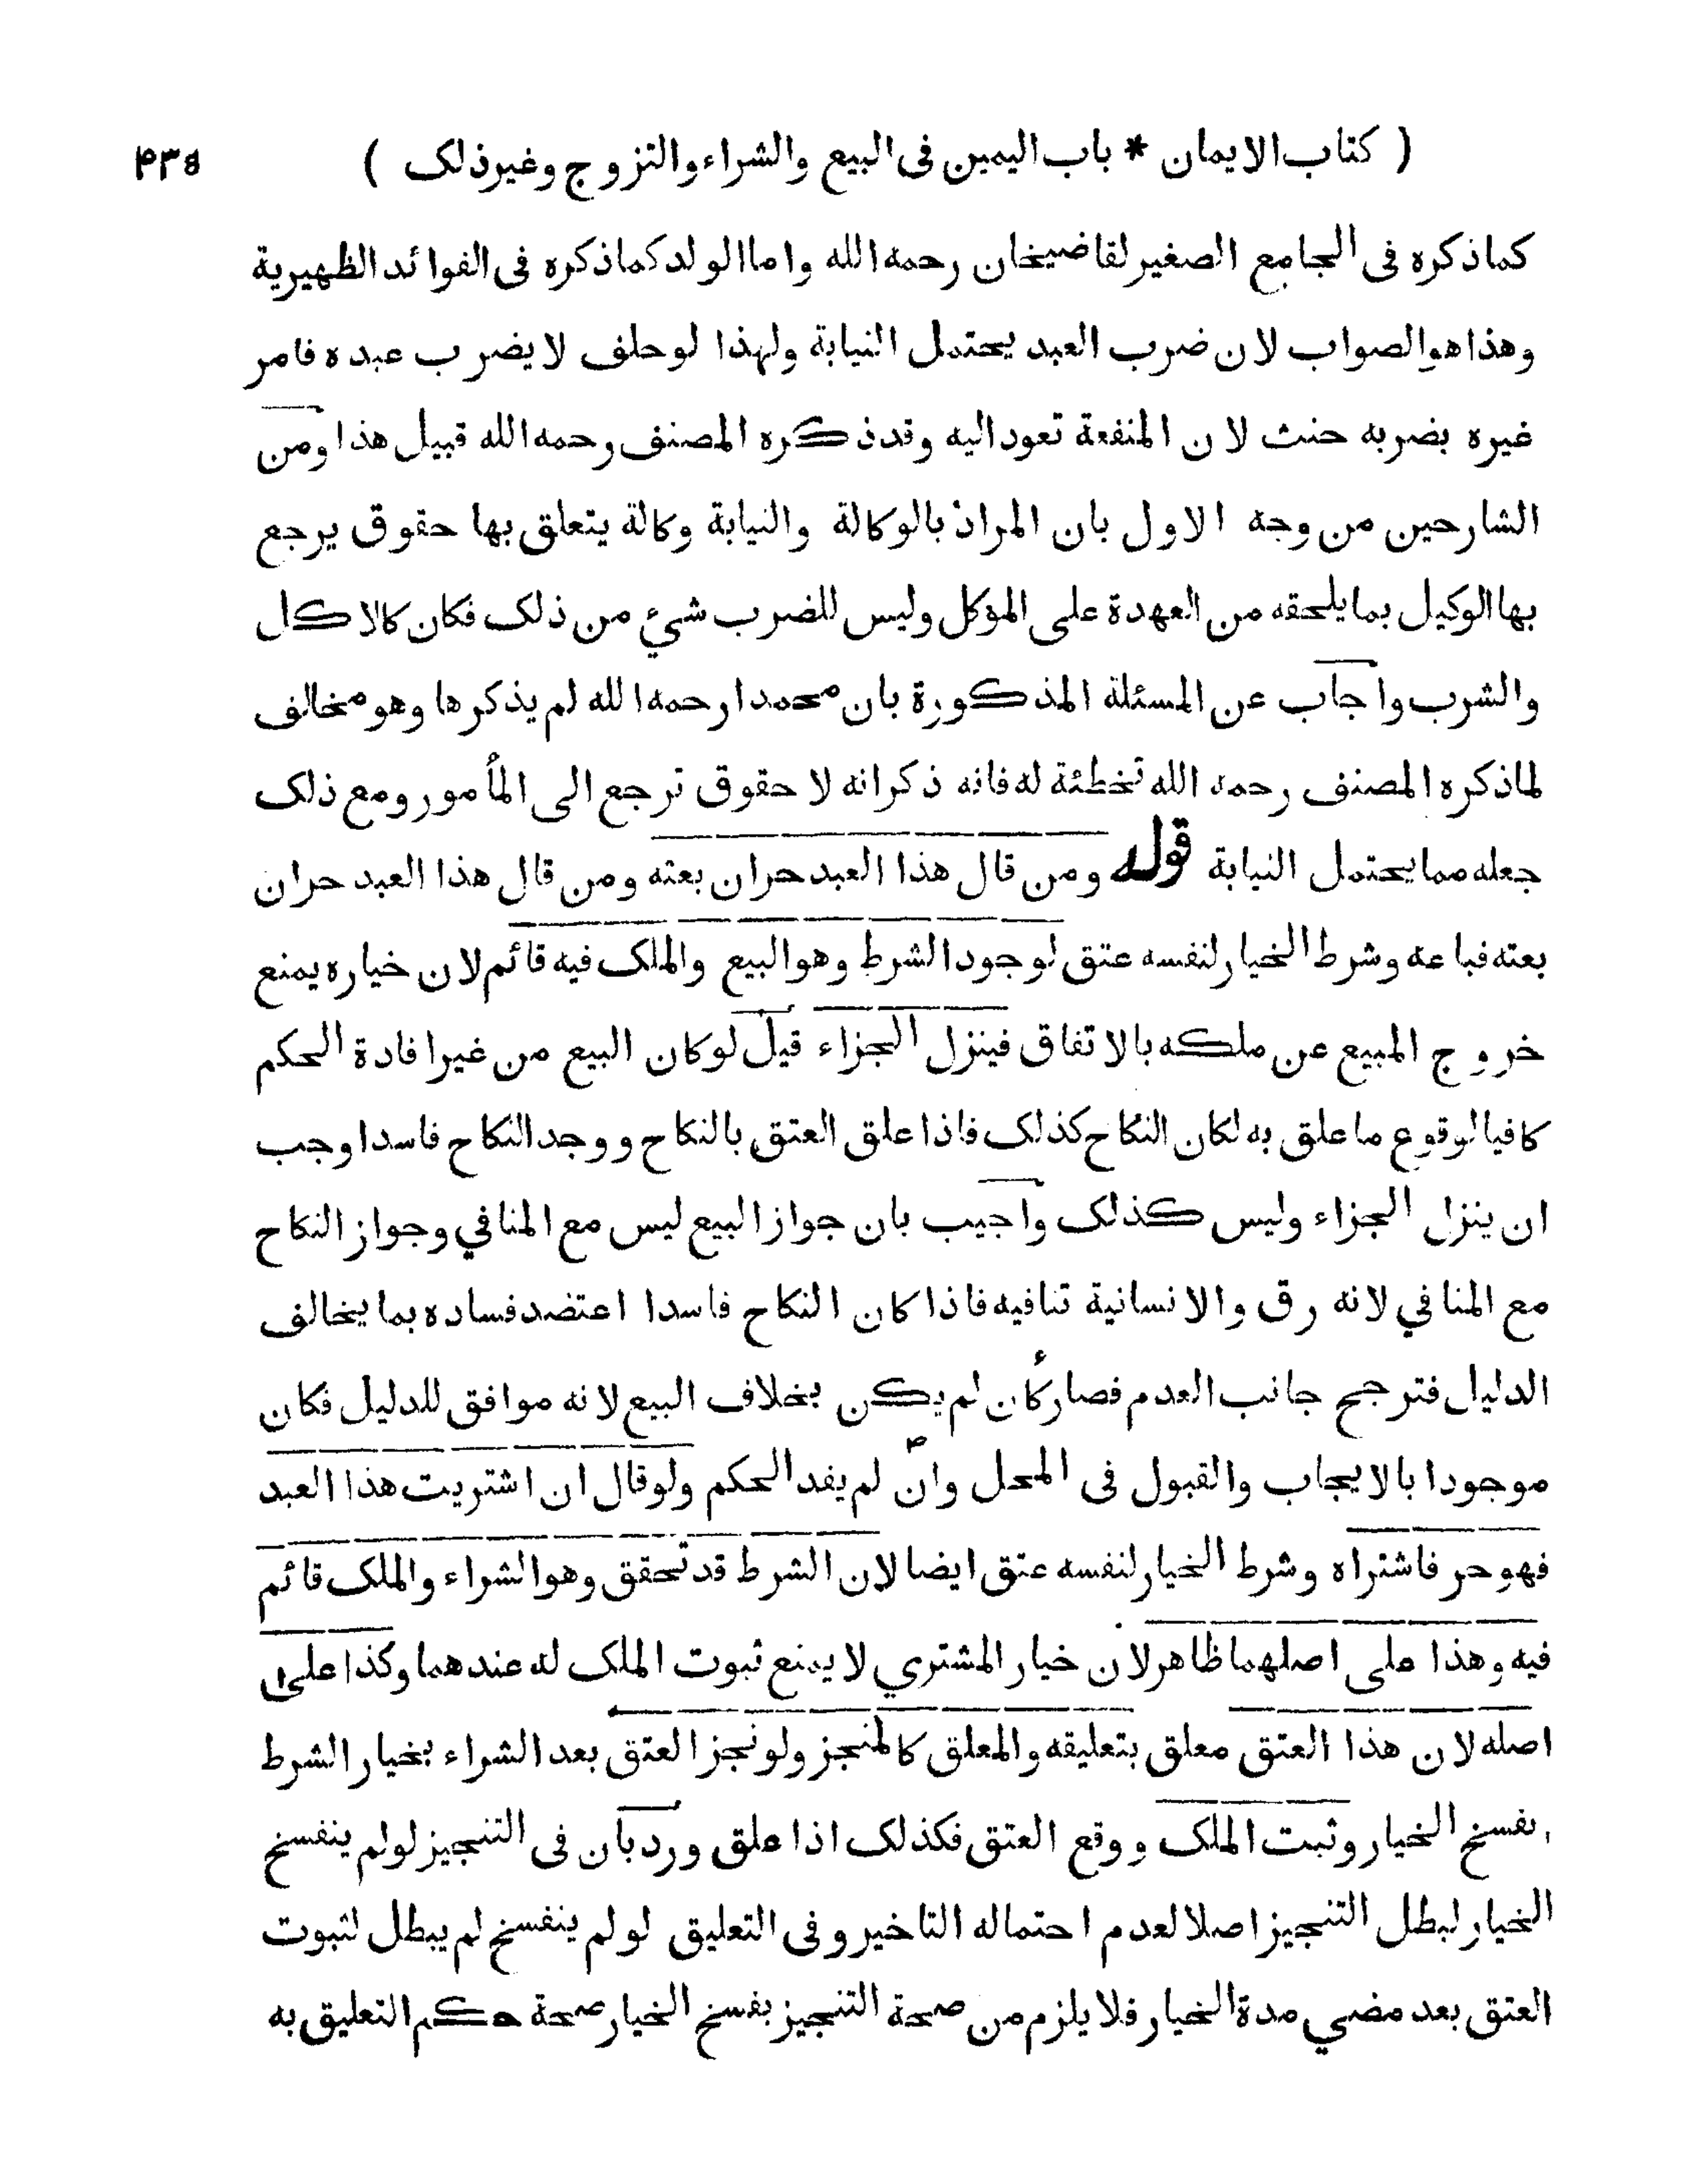 ( كتاب الايمان * باب اليمين فى البيع والشراء والتزوج وغير ذلک ) ۴۳۵
كما ذكره فى الجامع الصغير لقاضيخان رحمه الله واما الولد كما ذكره فى الفوائد الظهيرية
وهذا هو الصواب لان ضرب العبد يحتمل النيابة ولهذا لو حلف لا يضرب عبده فامر
غيره بضربه حنث لان المنفعة تعود اليه وقد ذكره المصنف رحمه الله قبيل هذا ومن
الشارحين من وجه الاول بان المراد بالوكالة والنيابة وكالة يتعلق بها حقوق يرجع
بها الوكيل بما يلحقه من العهدة على الموكل وليس للضرب شيء من ذلک فكان كالاكل
والشرب واجاب عن المسئلة المذكورة بان محمدا رحمه الله لم يذكرها وهو مخالف
لما ذكره المصنف رحمه الله تخطئة له فانه ذكر انه لا حقوق ترجع الى المأمور ومع ذلک
جعله مما يحتمل النيابة قوله ومن قال هذا العبد حر ان بعته ومن قال هذا العبد حر ان
بعته فباعه وشرط الخيار لنفسه عتق لوجود الشرط وهو البيع والملک فيه قائم لان خياره يمنع
خروج المبيع عن ملكه بالاتفاق فينزل الجزاء قيل لو كان البيع من غير افادة الحكم
كافيا لوقوع ما علق به لكان النكاح كذلک فاذا علق العتق بالنكاح ووجد النكاح فاسدا وجب
ان ينزل الجزاء وليس كذلک واجيب بان جواز البيع ليس مع المنافي وجواز النكاح
مع المنافي لانه رق والانسانية تنافيه فاذا كان النكاح فاسدا اعتضد فساده بما يخالف
الدليل فترجح جانب العدم فصار كأن لم يكن بخلاف البيع لانه موافق للدليل فكان
موجودا بالايجاب والقبول فى المحل وان لم يفد الحكم ولو قال ان اشتريت هذا العبد
فهو حر فاشتراه وشرط الخيار لنفسه عتق ايضا لان الشرط قد تحقق وهو الشراء والملک قائم
فيه وهذا على اصلهما ظاهر لان خيار المشتري لا يمنع ثبوت الملک له عندهما وكذا على
اصله لان هذا العتق معلق بتعليقه والمعلق كالمنجز ولو نجز العتق بعد الشراء بخيار الشرط
يفسخ الخيار وثبت الملک ووقع العتق فكذلک اذا علق ورد بان فى التنجيز لو لم ينفسخ
الخيار لبطل التنجيز اصلا لعدم احتماله التاخير وفى التعليق لو لم ينفسخ لم يبطل لثبوت
العتق بعد مضي مدة الخيار فلا يلزم من صحة التنجيز بفسخ الخيار صحة حكم التعليق به